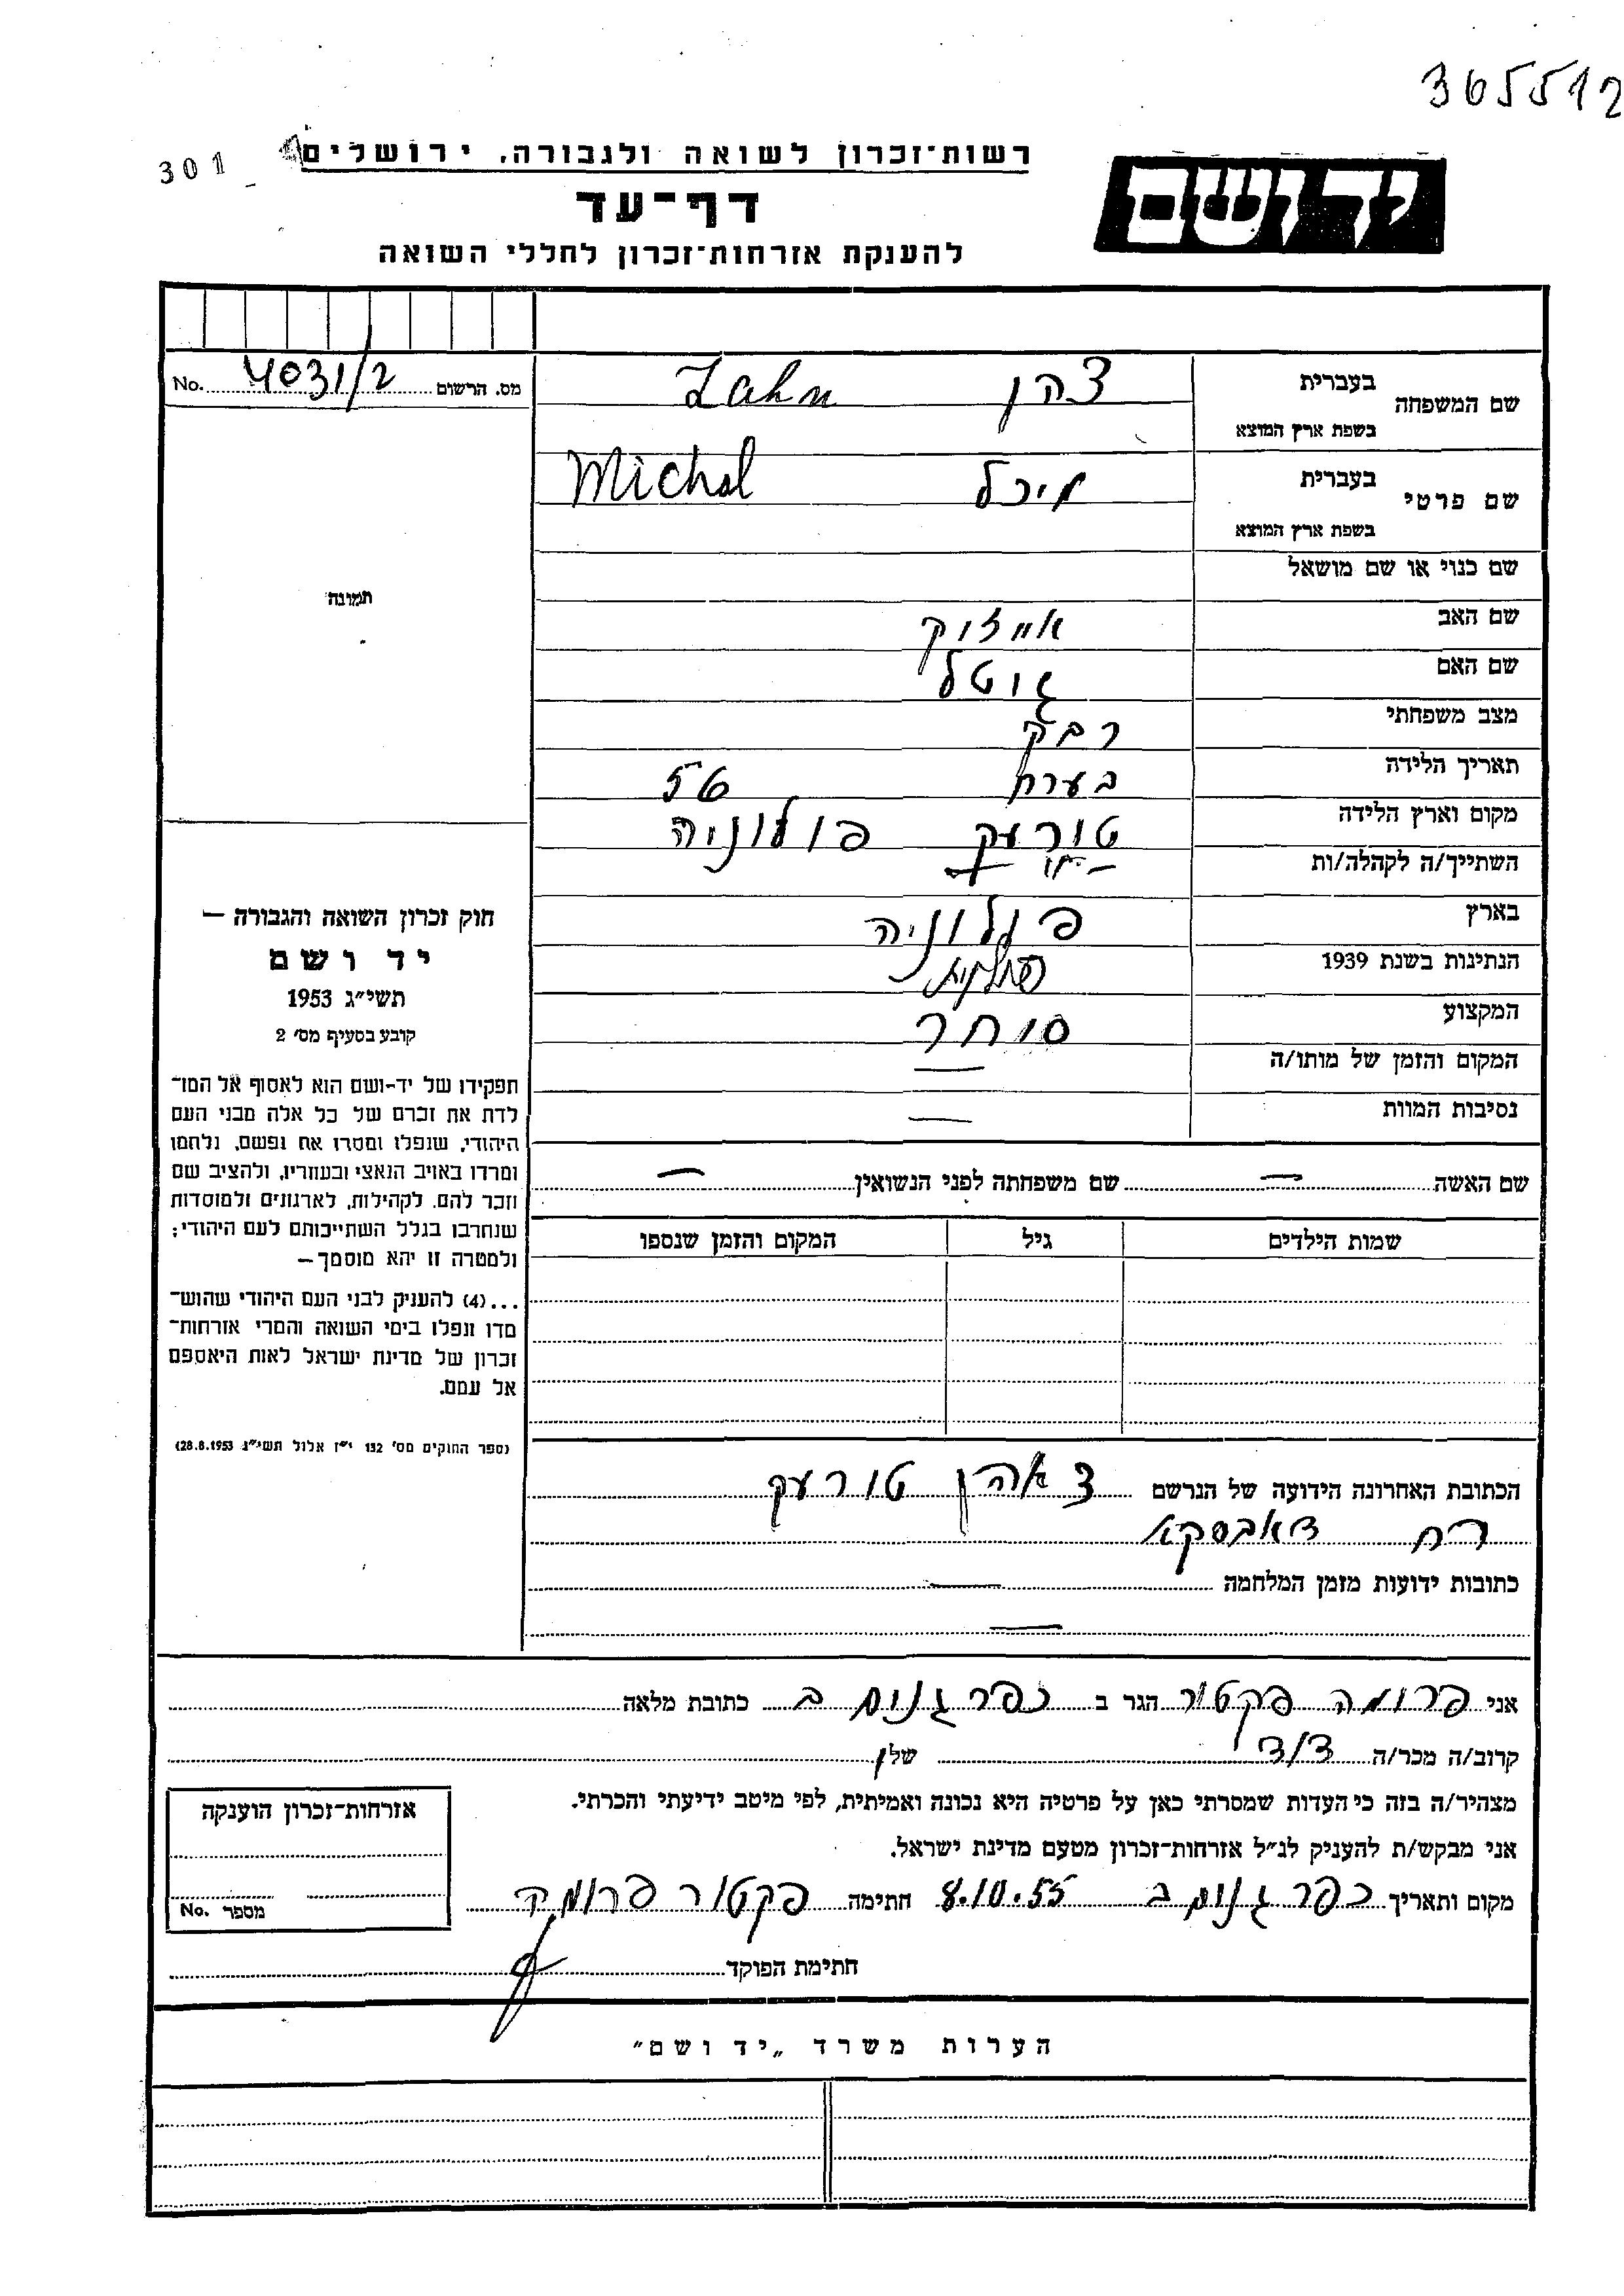 365512
301
רשות־זכרון לשואה ולגבורה, ירושלים
יד ושם
דף־עד
להענקת אזרחות־זכרון לחללי השואה
מס. הרשום 4031/2 No.
שם המשפחה בעברית צהן Zahn
בשפת ארץ המוצא
שם פרטי בעברית מיכל Michal
בשפת ארץ המוצא
שם כנוי או שם מושאל
תמונה
שם האב אייזוק
שם האם גוטל
מצב משפחתי רבק
תאריך הלידה בערת 56
מקום וארץ הלידה טורעק פולוניה
השתייך/ה לקהלה/ות
בארץ פולוניה
הנתינות בשנת 1939
המקצוע סוחר
המקום והזמן של מותו/ה —
נסיבות המוות —
חוק זכרון השואה והגבורה —
יד ושם
תשי״ג 1953
קובע בסעיף מס׳ 2
תפקידו של יד-ושם הוא לאסוף אל המו־
לדת את זכרם של כל אלה מבני העם
היהודי, שנפלו ומסרו את נפשם, נלחמו
ומרדו באויב הנאצי ובעוזריו, ולהציב שם
וזכר להם, לקהילות, לארגונים ולמוסדות
שנחרבו בגלל השתייכותם לעם היהודי;
ולמטרה זו יהא מוסמך—
...(4) להעניק לבני העם היהודי שהוש־
מדו ונפלו בימי השואה והמרי אזרחות־
זכרון של מדינת ישראל לאות היאספם
אל עמם.
(ספר החוקים מס׳ 132 י״ז אלול תשי״ג 28.8.1953)
שם האשה — שם משפחתה לפני הנשואין —
שמות הילדים גיל המקום והזמן שנספו
הכתובת האחרונה הידועה של הנרשם צאהן טורעק
רח
כתובות ידועות מזמן המלחמה —
—
אני פרומה פקטור הגר ב כפר גנים ב כתובת מלאה
קרוב/ה מכר/ה דוד שלו
מצהיר/ה בזה כי העדות שמסרתי כאן על פרטיה היא נכונה ואמיתית, לפי מיטב ידיעתי והכרתי.
אני מבקש/ת להעניק לנ״ל אזרחות־זכרון מטעם מדינת ישראל.
מקום ותאריך כפר גנים ב 8.10.55 חתימה פקטור פרומה
אזרחות־זכרון הוענקה
מספר No.
חתימת הפוקד
הערות משרד „יד ושם״